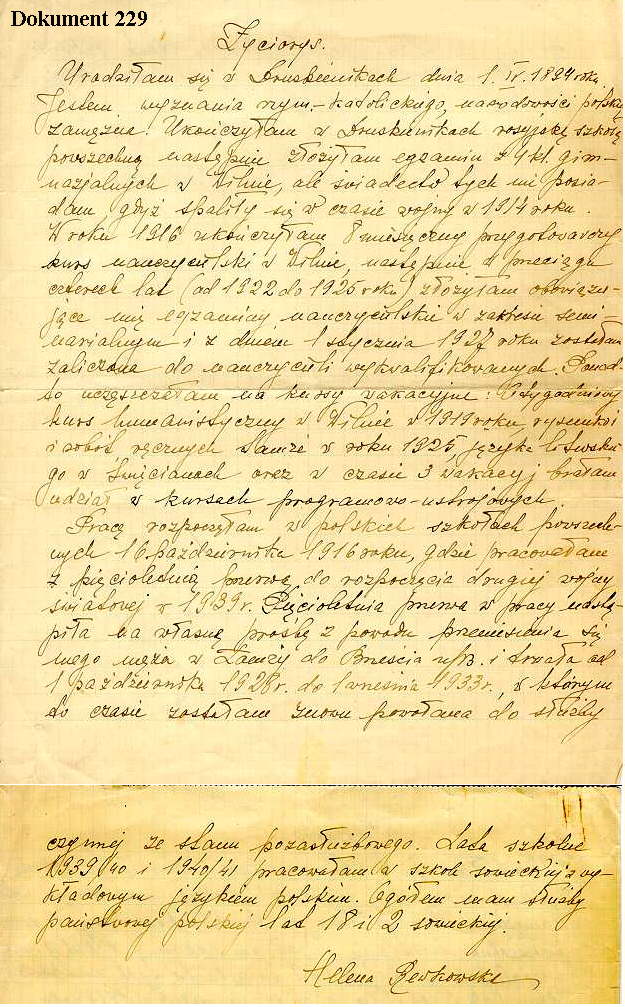 Dokument 229
Życiorys.
Urodziłam się w Druskienikach dnia 1.IV.1894 roku
Jestem wyznania rzym.-katolickiego, narodowości polskiej,
zamężna. Ukończyłam w Druskienikach rosyjską szkołę
powszechną następnie złożyłam egzamin z 4 kl. gim-
nazjalnych w Wilnie, ale świadectw tych nie posia-
dam, gdyż spaliły się w czasie wojny w 1914 roku.
W roku 1916 ukończyłam 8 miesięczny przygotowawczy
kurs nauczycielski w Wilnie, następnie w przeciągu
czterech lat (od 1922 do 1925 roku) złożyłam obowiązu-
jące mię egzaminy nauczycielskie w zakresie semi-
narialnym i z dniem 1 stycznia 1927 roku zostałam
zaliczona do nauczycieli wykwalifikowanych. Ponad-
to uczęszczałam na kursy wakacyjne: tygodniowy
kurs humanistyczny w Wilnie w 1919 roku, rysunków
i robót ręcznych tamże w roku 1925, języka litewskie-
go w Święcianach oraz w czasie 3 wakacyj brałam
udział w kursach programowo-ustrojowych.
Pracę rozpoczęłam w polskich szkołach powszech-
nych 16 października 1916 roku, gdzie pracowałam
z pięcioletnią przerwą do rozpoczęcia drugiej wojny
światowej w 1939 r. Pięcioletnia przerwa w pracy nastą-
piła na własną prośbę z powodu przeniesienia się
mego męża z Łomży do Brześcia n/B. i trwała od
1 października 1928 r. do 1 września 1933 r., w którym
to czasie zostałam znowu powołana do służby
czynnej ze stanu pozasłużbowego. Lata szkolne
1939/40 i 1940/41 pracowałam w szkole sowieckiej z wy-
kładowym językiem polskim. Ogółem mam służby
państwowej polskiej lat 18 i 2 sowieckiej.
Helena Rewkowska